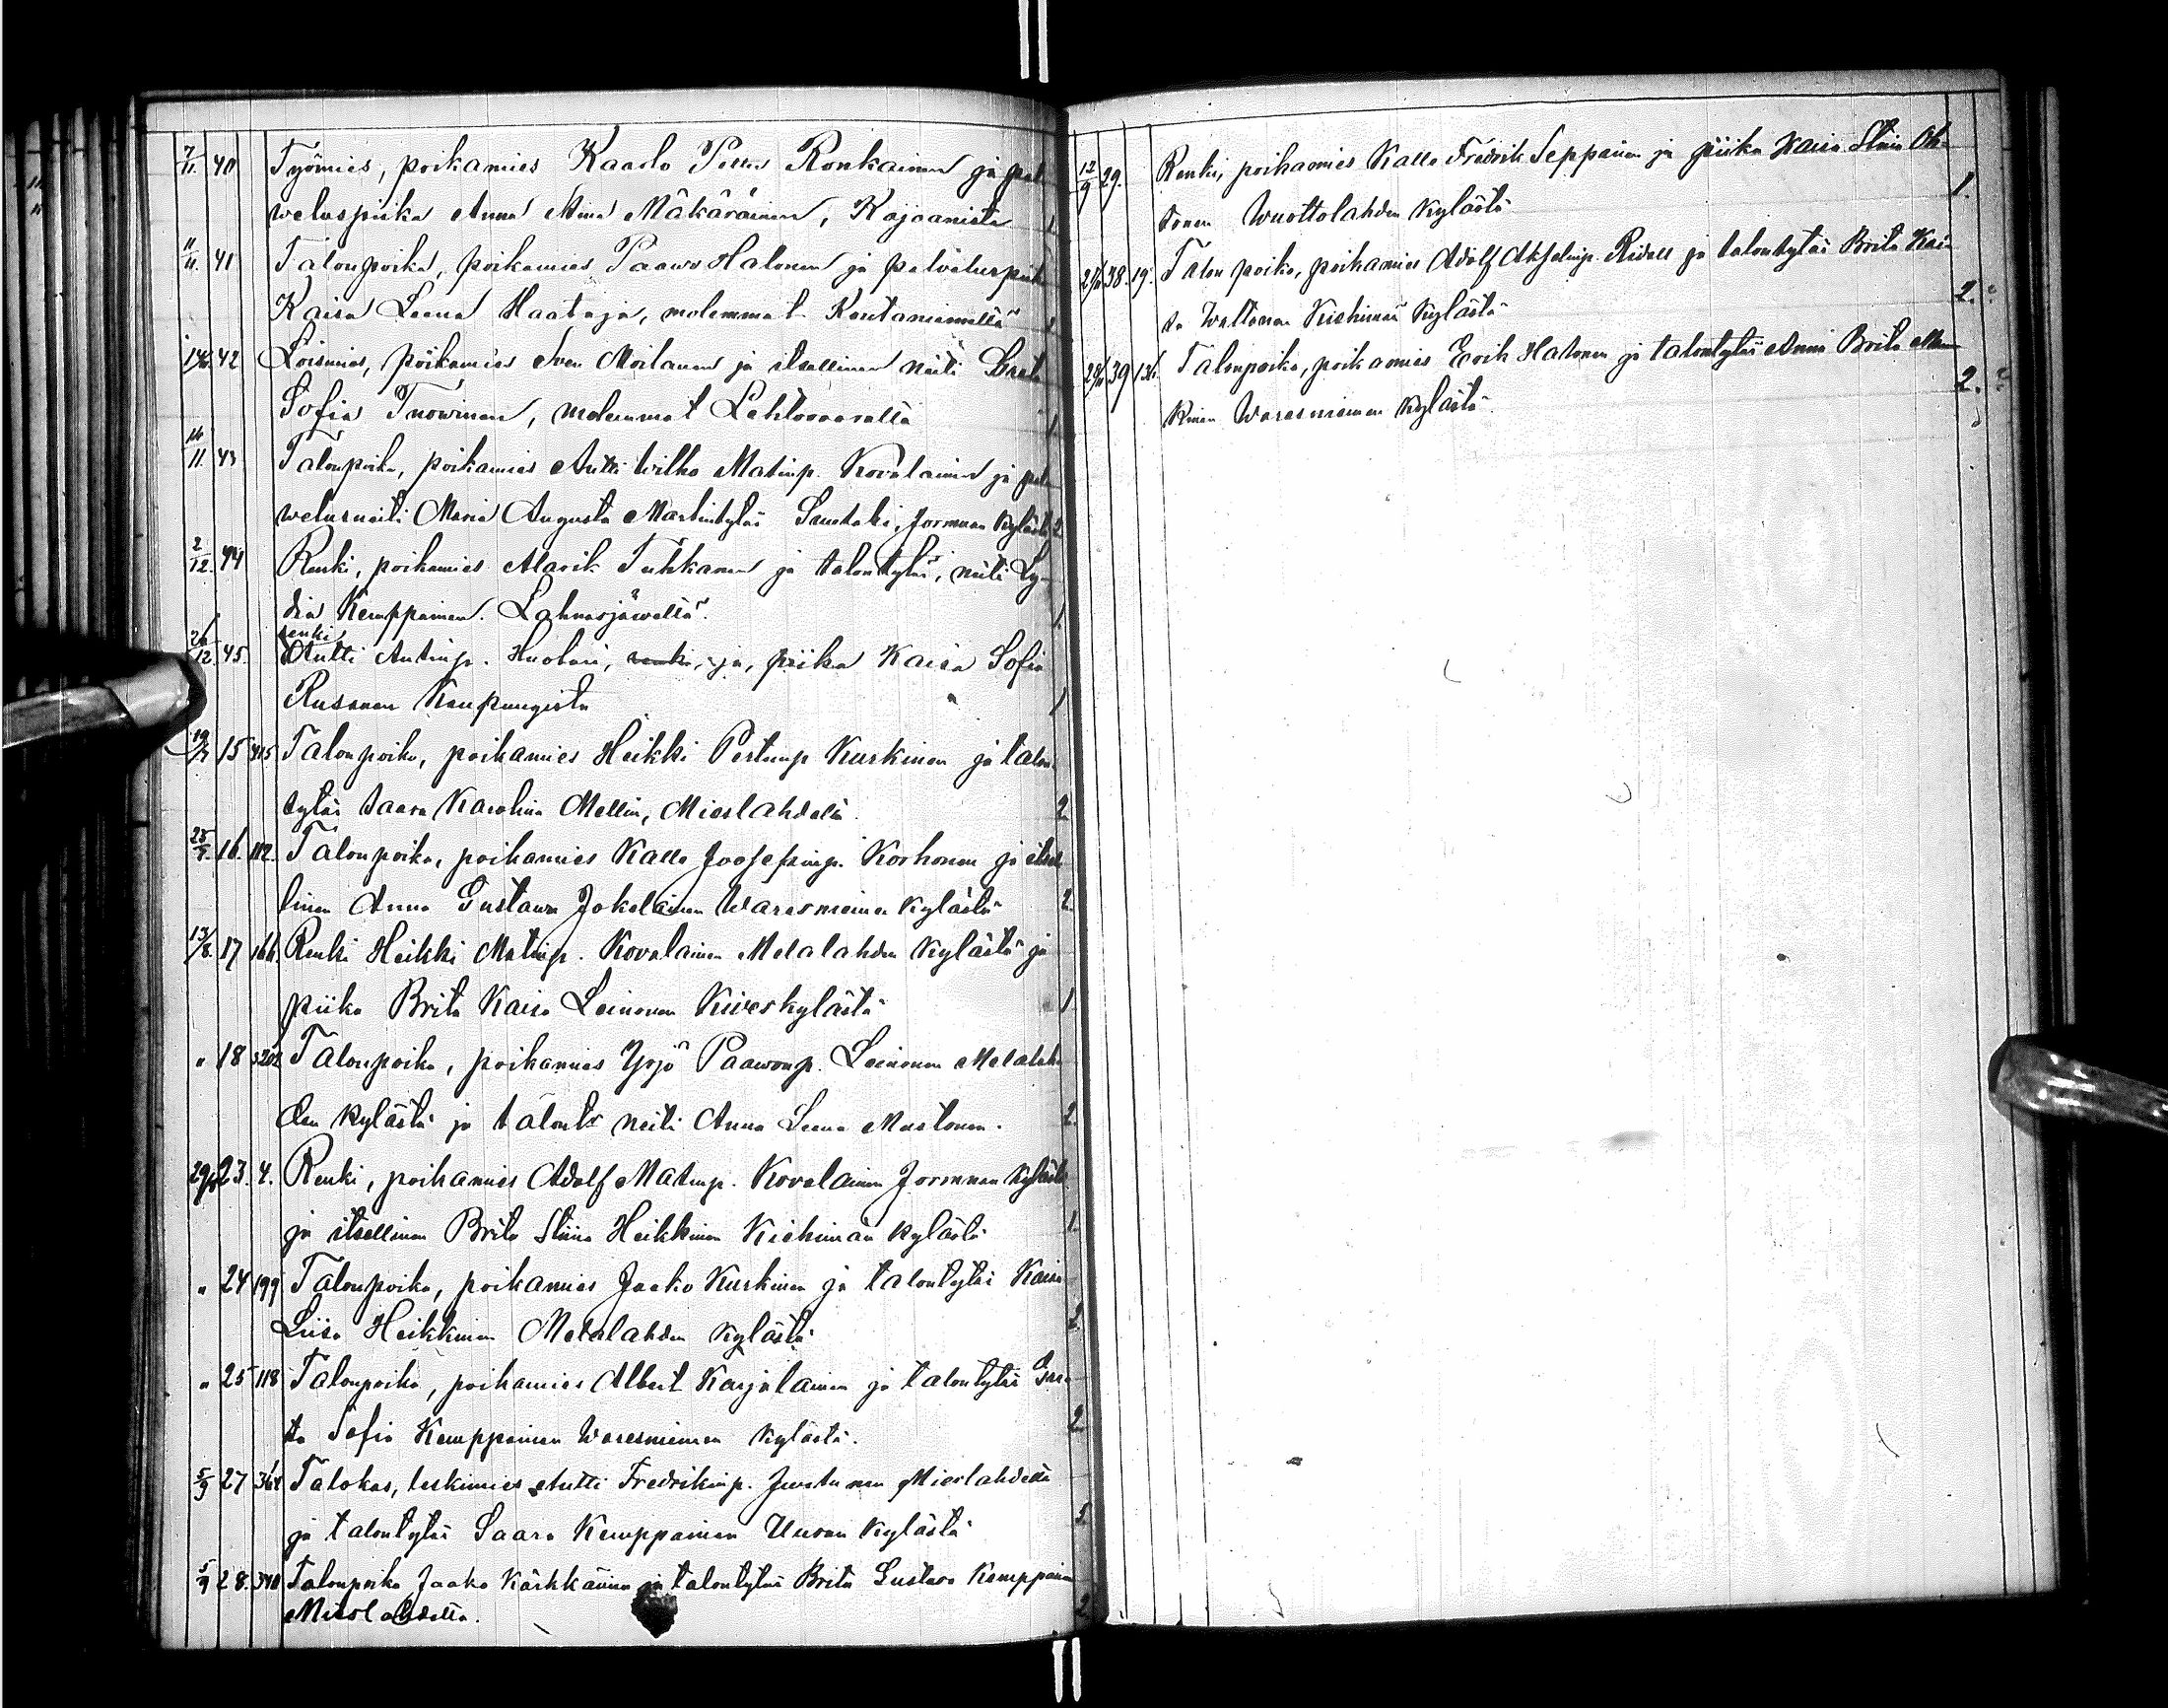 7/11. 40 Työmies, poikamies Kaarlo Petter Ronkainen ja pal
weluspiika Anna Stina Mäkäräinen, Kajaanista 1
11/11. 41 Talonpoika, poikamies Paavo Halonen ja palveluspiika
Kaisa Leena Haataja, molemmat Koutaniemellä
14/11 42 Loismies, poikamies Sven Moilanen ja itsellinen neiti Greta
Sofia Tuovinen, molemmat Lehtovaaralla 1
16/11. 43 Talonpoika, poikamies Antti Wilho Matinp. Kovalainen ja pal
welusneiti Maria Augusta Martintytär Jormuan kylästä 2
2/12. 44 Renki, poikamies Alarik Tuhkanen ja talontytär, neiti Ly-
dia Kemppainen. Lahnasjäwellä. 1.
26/12 45. renki Antti Antinp. Huotari, renki, ja, piika Kaisa Sofia
Rusanen Kaupungista 1
19/7 15 415 Talonpoika, poikamies Heikki Pertunp Kurkinen ja talon-
tytär Saara Karolina Mellin, Mieslahdelta. 2
25/7. 16. 112. Talonpoika, poikamies Kalle Joosefinp. Korhonen ja itsel
linen Anna Gustawa Jokelainen Waresniemen kylästä 2.
13/8. 17 166. Renki Heikki Matinp. Kovalainen Melalahden kylästä ja
piika Brita Kaisa Leinonen Kiveskylästä 1
" 18 3202 Talonpoika, poikamies Yrjö Paawonp. Leinonen Melalah
den kylästä ja talont. neiti Anna Leena Mustonen. 2.
29/8 23. 4. Renki, poikamies Adolf Matinp. Kovalainen Jormuan kylästä
ja itsellinen Brita Stiina Heikkinen Kiehimän kylästä 1.
" 24 199 Talonpoika, poikamies Jaako Kurkinen ja talontytär Kaisa
Liisa Heikkinen Melalahden kylästä 2.
" 25 118 Talonpoika, poikamies Albert Karjalainen ja talontytär Gre-
ta Sofia Kemppainen Waresniemen kylästä. 2
5/9 27 364 Talokas, leskimies Antti Fredrikinp. Juntunen Mieslahdella
ja talontytär Saara Kemppainen Uuran kylästä 3.
5/9 28. 340 Talonpoika Jaako Kärkkäinen ja talontytär Brita Gustava Kemppainen
Mieslahdella. 2
12/9 29. Renki, poikamies Kalle Fredrik Seppänen ja piika Kaisa Stina Ok-
sanen Wuottolahden kylästä 1.
27/11 38. 19. Talonpoika, poikamies Adolf Akselinp. ja talontytär Brita Kai-
sa Waltanen Kiehimän kylästä 2.
28/11 39 136. Talonpoika, poikamies Eerik Halonen ja talontytär Anna Brita
Waresniemen kylästä. 2.